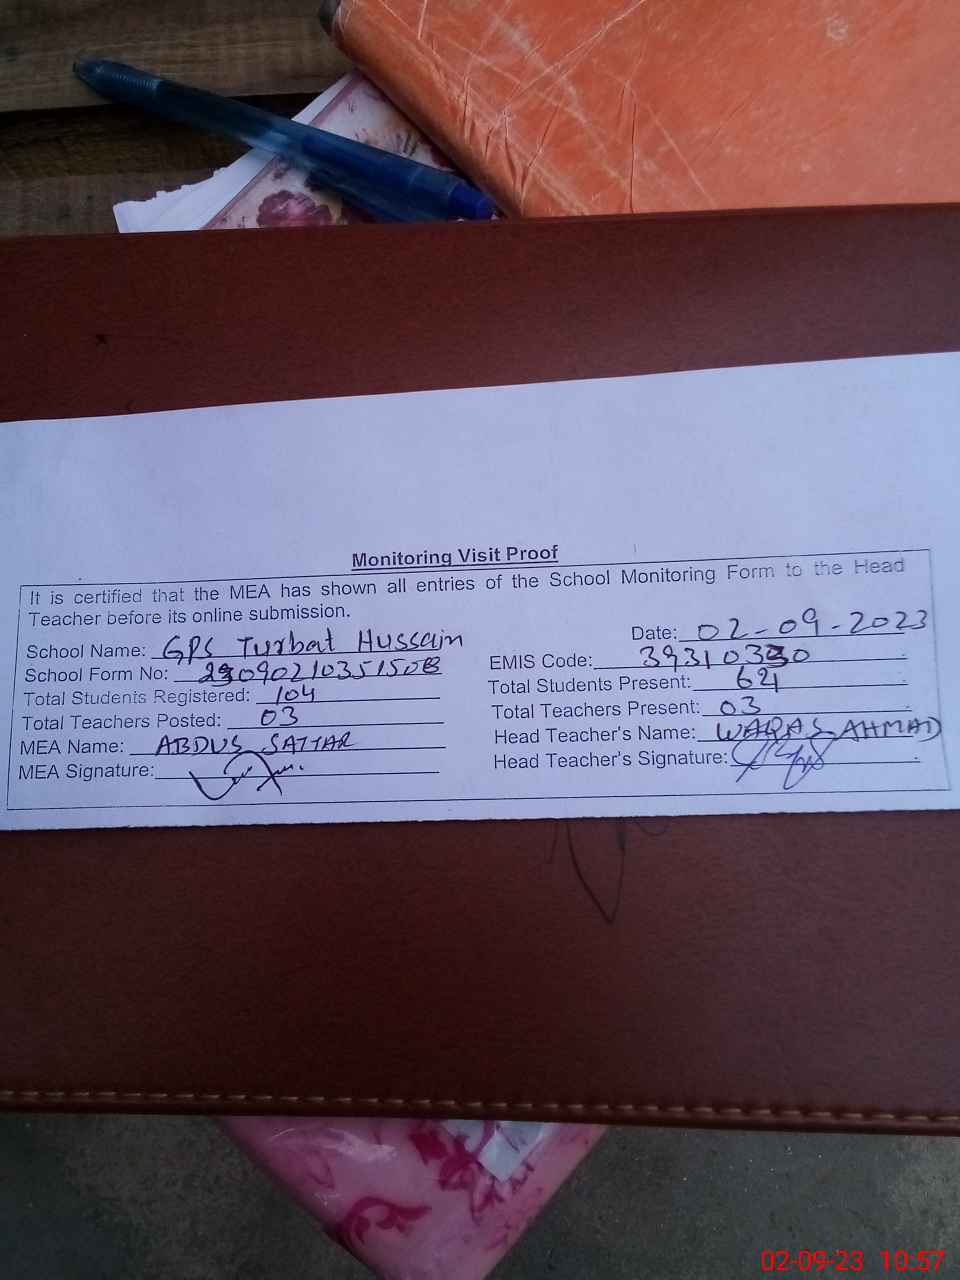 Monitoring Visit Proof
It is certified that the MEA has shown all entries of the School Monitoring Form to the Head
Teacher before its online submission.
Date: 02-09-2023
School Name: GPS Turbat Hussain
EMIS Code: 39310330
School Form No:
Total Students Present:
Total Students Registered: 104
Total Teachers Present: 03
Total Teachers Posted: 03
Head Teacher's Name: WAQAS AHMAD
MEA Name: ABDUS SATTAR
Head Teacher's Signature:
MEA Signature:
02-09-23 10:57